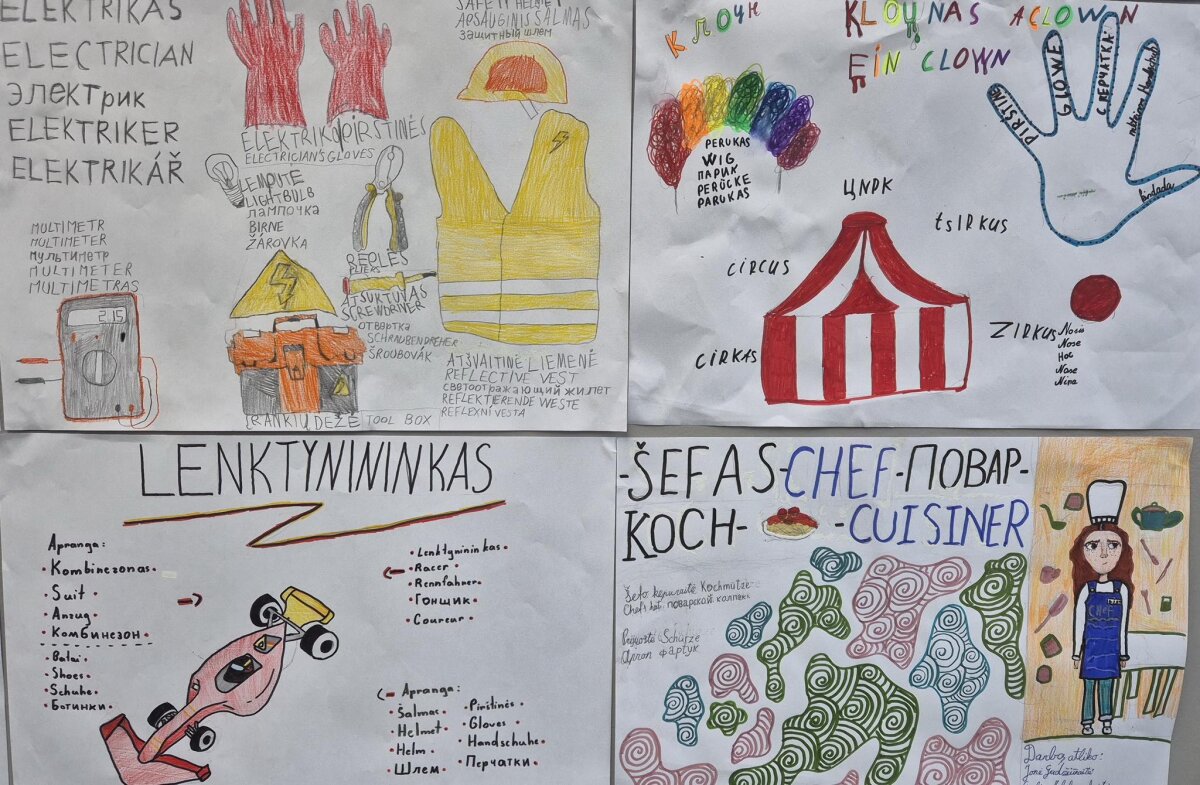 ELEKTRIKAS
ELECTRICIAN
электрик
ELEKTRIKER
ELEKTRIKÁŘ
ELEKTRIKO PIRŠTINĖS
ELECTRICIANS GLOVES
SAFETY HELMET
APSAUGINIS ŠALMAS
защитный шлем
LEMPUTĖ
LIGHTBULB
лампочка
BIRNE
ŽÁROVKA
REPLĖS
PLIERS
ATSUKTUVAS
SCREWDRIVER
отвертка
SCHRAUBENDREHER
ŠROUBOVÁK
MULTIMETR
MULTIMETER
мультиметр
MULTIMETER
MULTIMETRAS
2.15
ĮRANKIŲ DĖŽĖ TOOL BOX
ATŠVAITINĖ LIEMENĖ
REFLECTIVE VEST
светоотражающий жилет
REFLEKTIERENDE WESTE
REFLEXNÍ VESTA
КЛОУН
KLOUNAS A CLOWN
EIN CLOWN
PERUKAS
WIG
ПАРИК
PERÜCKE
PARUKAS
PIRŠTINĖ
GLOWE
СПЕРЧАТКА
ЦИРК
tsIRKUS
CIRCUS
CIRKAS
ZIRKUS
Nosis
Nose
Нос
Nase
Nina
LENKTYNININKAS
Apranga:
• Kombinezonas.
• Suit •
• Anzug •
• Комбинезон •
• Batai •
• Shoes.
• Schuhe.
• Ботинки.
• Lenktynininkas.
• Racer •
• Rennfahrer •
• Гонщик •
• Coureur •
• Apranga:
• Šalmas •
• Helmet •
• Helm •
• Шлем •
• Pirštinės •
• Gloves •
• Handschuhe •
• Перчатки •
-ŠEFAS-CHEF-ПОВАР-
KOCH- -CUISINER
Šefo kepuraitė Kochmütze
Chef's hat поварской колпак
Prijuostė Schürze
Apron фартук
CHEF
Darbą atliko: